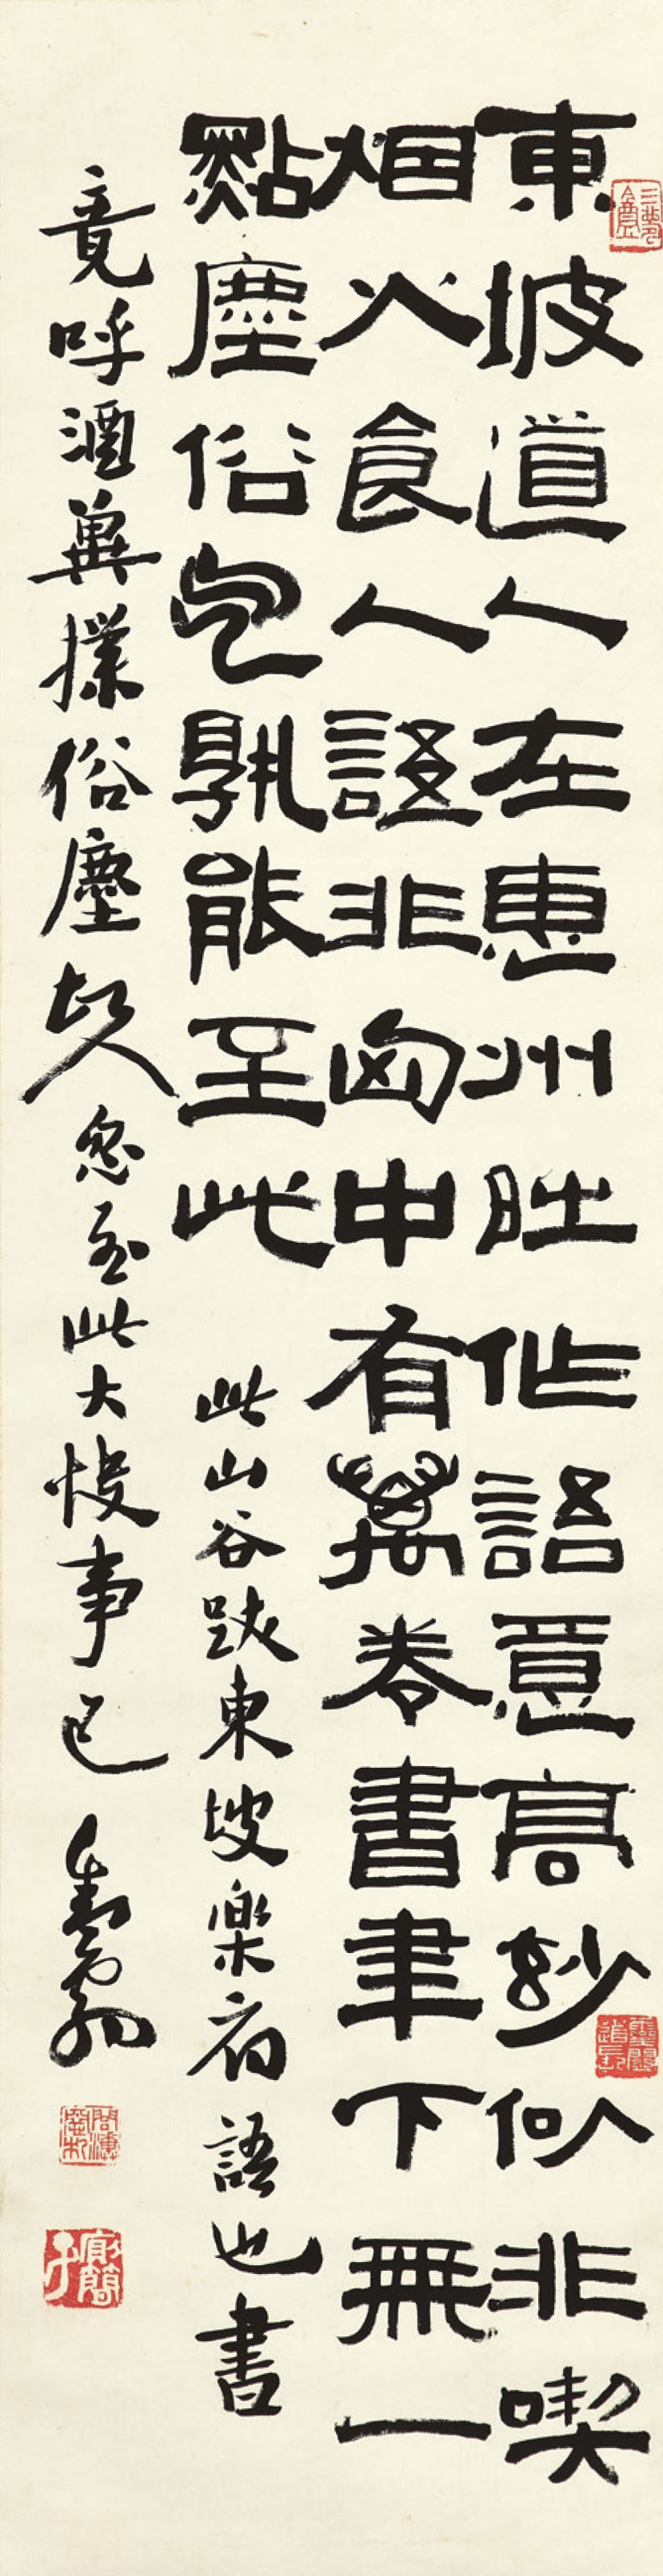 東坡道人在惠州時作語意高妙似非喫
烟火食人語非匈中有萬卷書聿下無一
點塵俗气孰能至此 此山谷跋東坡樂府語也書
竟呼酒冀撲俗塵忽至此大快事已